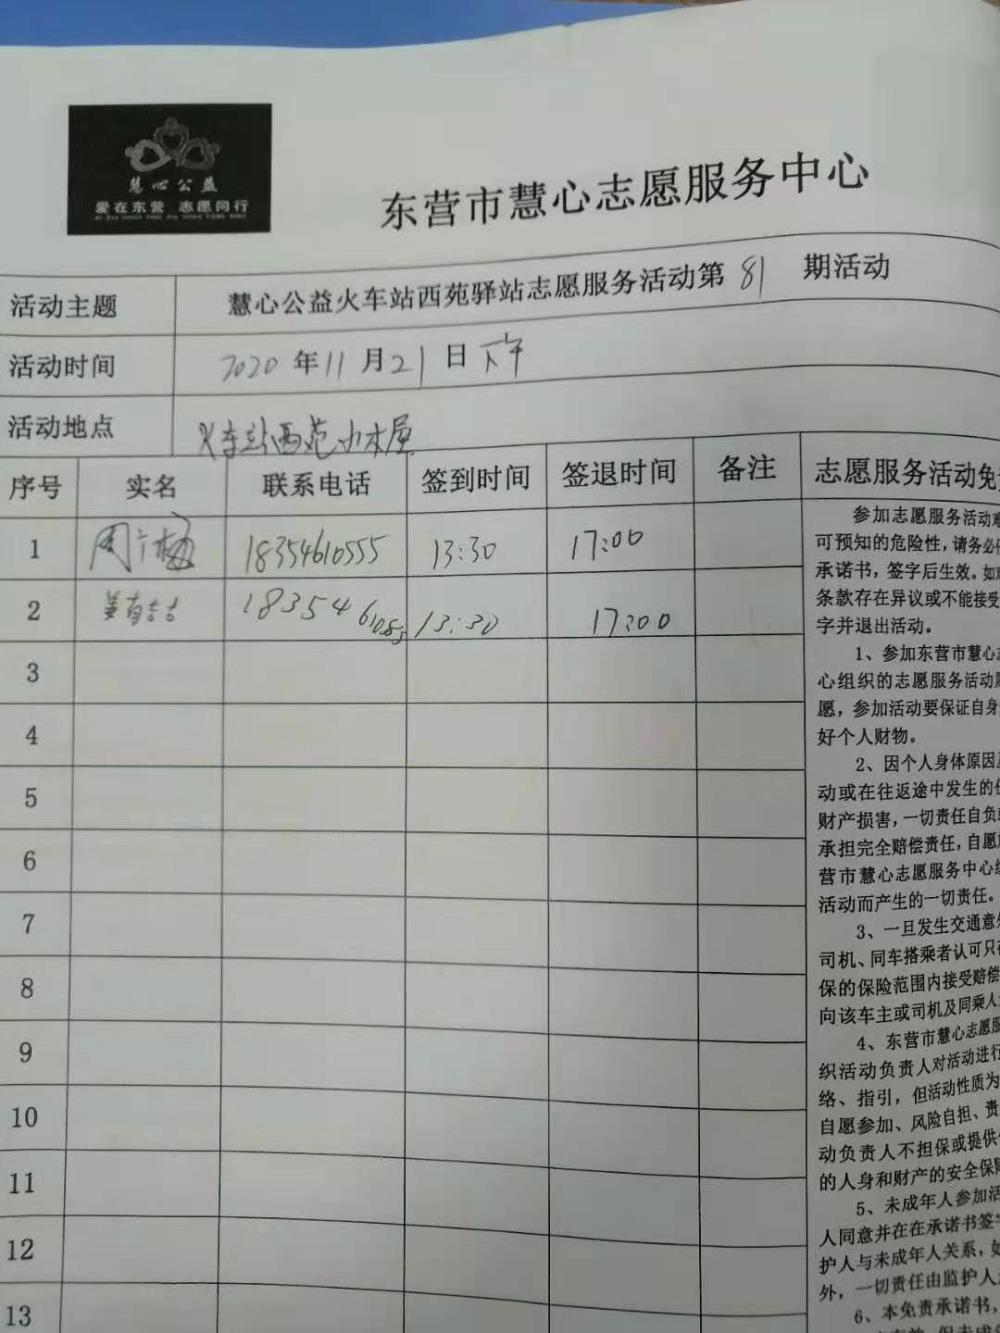 慧心公益
爱在东营 志愿同行
东营市慧心志愿服务中心
活动主题 慧心公益火车站西苑驿站志愿服务活动第81期活动
活动时间 2020年11月21日下午
活动地点 火车站西苑小木屋
序号 实名 联系电话 签到时间 签退时间 备注 志愿服务活动免
1 周广梅 18354610555 13:30 17:00
2 18354 13:30 17:00
3
4
5
6
7
8
9
10
11
12
13
参加志愿服务活动
可预知的危险性,请务必
承诺书,签字后生效。如
条款存在异议或不能接受
字并退出活动。
1、参加东营市慧心
心组织的志愿服务活动
愿,参加活动要保证自身
好个人财物。
2、因个人身体原因
动或在往返途中发生的
财产损害,一切责任自负
承担完全赔偿责任,自愿
营市慧心志愿服务中心
活动而产生的一切责任。
3、一旦发生交通意
司机、同车搭乘者认可只
保的保险范围内接受赔偿
向该车主或司机及同乘人
4、东营市慧心志愿
织活动负责人对活动进行
络、指引,但活动性质为
自愿参加、风险自担、责
动负责人不担保或提供
的人身和财产的安全保
5、未成年人参加活
人同意并在在承诺书签字
护人与未成年人关系,如
外,一切责任由监护人
6、本免责承诺书,